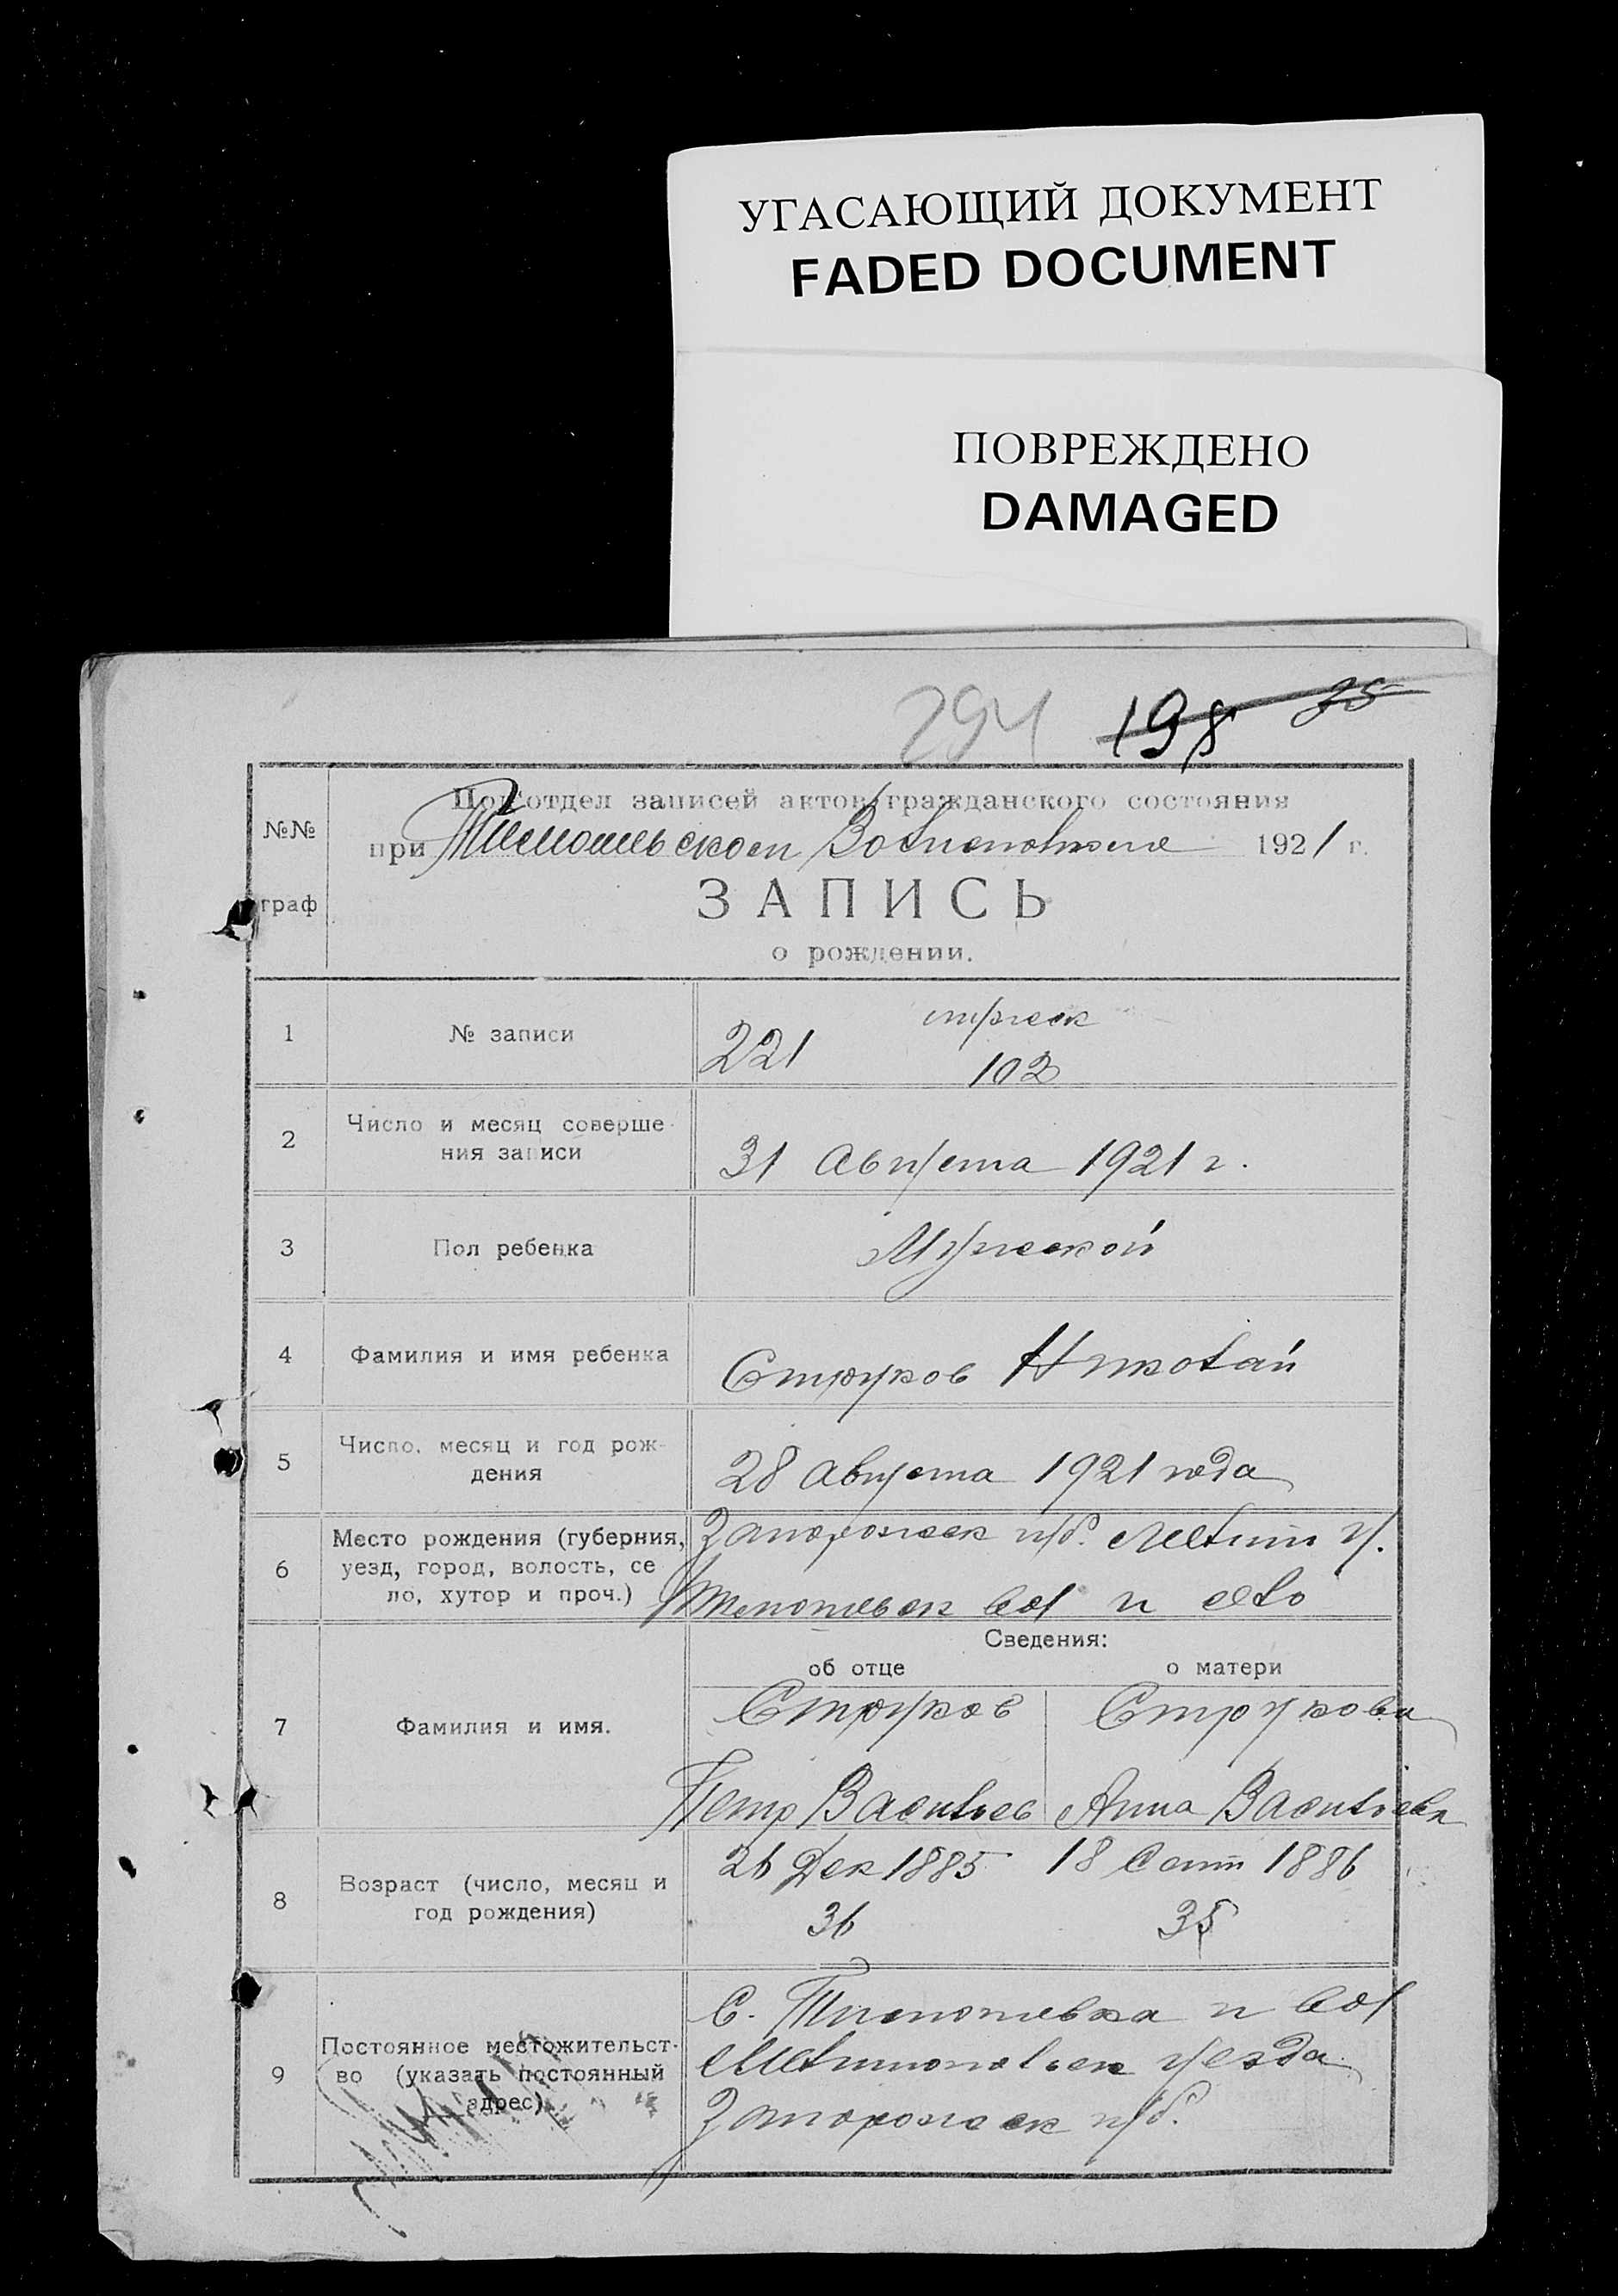 УГАСАЮЩИЙ ДОКУМЕНТ
FADED DOCUMENT
ПОВРЕЖДЕНО
DAMAGED
294 198 25
№№ граф
Подотдел записей актов гражданского состояния
при Тимошевском Волисполкоме 1921 г.
ЗАПИСЬ
о рождении.
1 № записи 221 мужеск 102
2 Число и месяц соверше-
ния записи 31 Августа 1921 г.
3 Пол ребенка Мужской
4 Фамилия и имя ребенка Струков Николай
5 Число, месяц и год рож-
дения 28 Августа 1921 года
6 Место рождения (губерния, Запорожск губ. Мелит у.
уезд, город, волость, се
ло, хутор и проч.) вол и село
Сведения:
об отце о матери
7 Фамилия и имя. Струков Струкова
Петр Васильев Анна Васильевна
8 Возраст (число, месяц и 26 Дек 1885 18 Сент 1886
год рождения) 36 35
9 Постоянное местожительст-
во (указать постоянный
адрес)
С. и вол
Мелитопольск уезда
Запорожск губ.